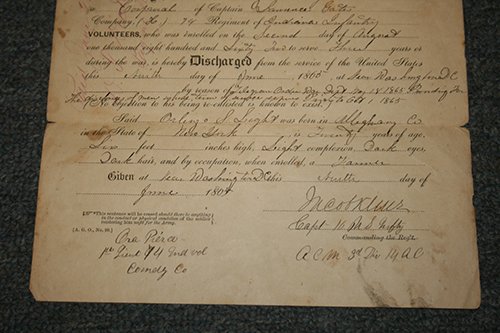 a Corporal of Captain
Company, (H) 74 Regiment of Indiana Infantry
VOLUNTEERS, who was enrolled on the Second day of August
one thousand eight hundred and Sixty Two to serve Three years or
during the war, is hereby Discharged from the service of the United States
this Ninth day of June, 1865, at Near Washington DC
by reason of Telegram Order War Dept May 18 1865
No objection to his being re-enlisted is known to exist.
Said S. Light was born in Alleghany Co
in the State of New York is Twenty years of age,
Six feet inches high, Light complexion, Dark eyes,
Dark hair, and by occupation, when enrolled, a Farmer
Given at near Washington DC this Ninth day of
June 1865
This sentence will be erased should there be anything
in the conduct or physical condition of the soldier
rendering him unfit for the Army.
[A. G. O., No. 99.]
Ora Pierce
1st Lieut 74 Ind Vol
Comdg Co
Capt U.S. Infty
Commanding the Reg't.
A C M 3d Div 14 A C